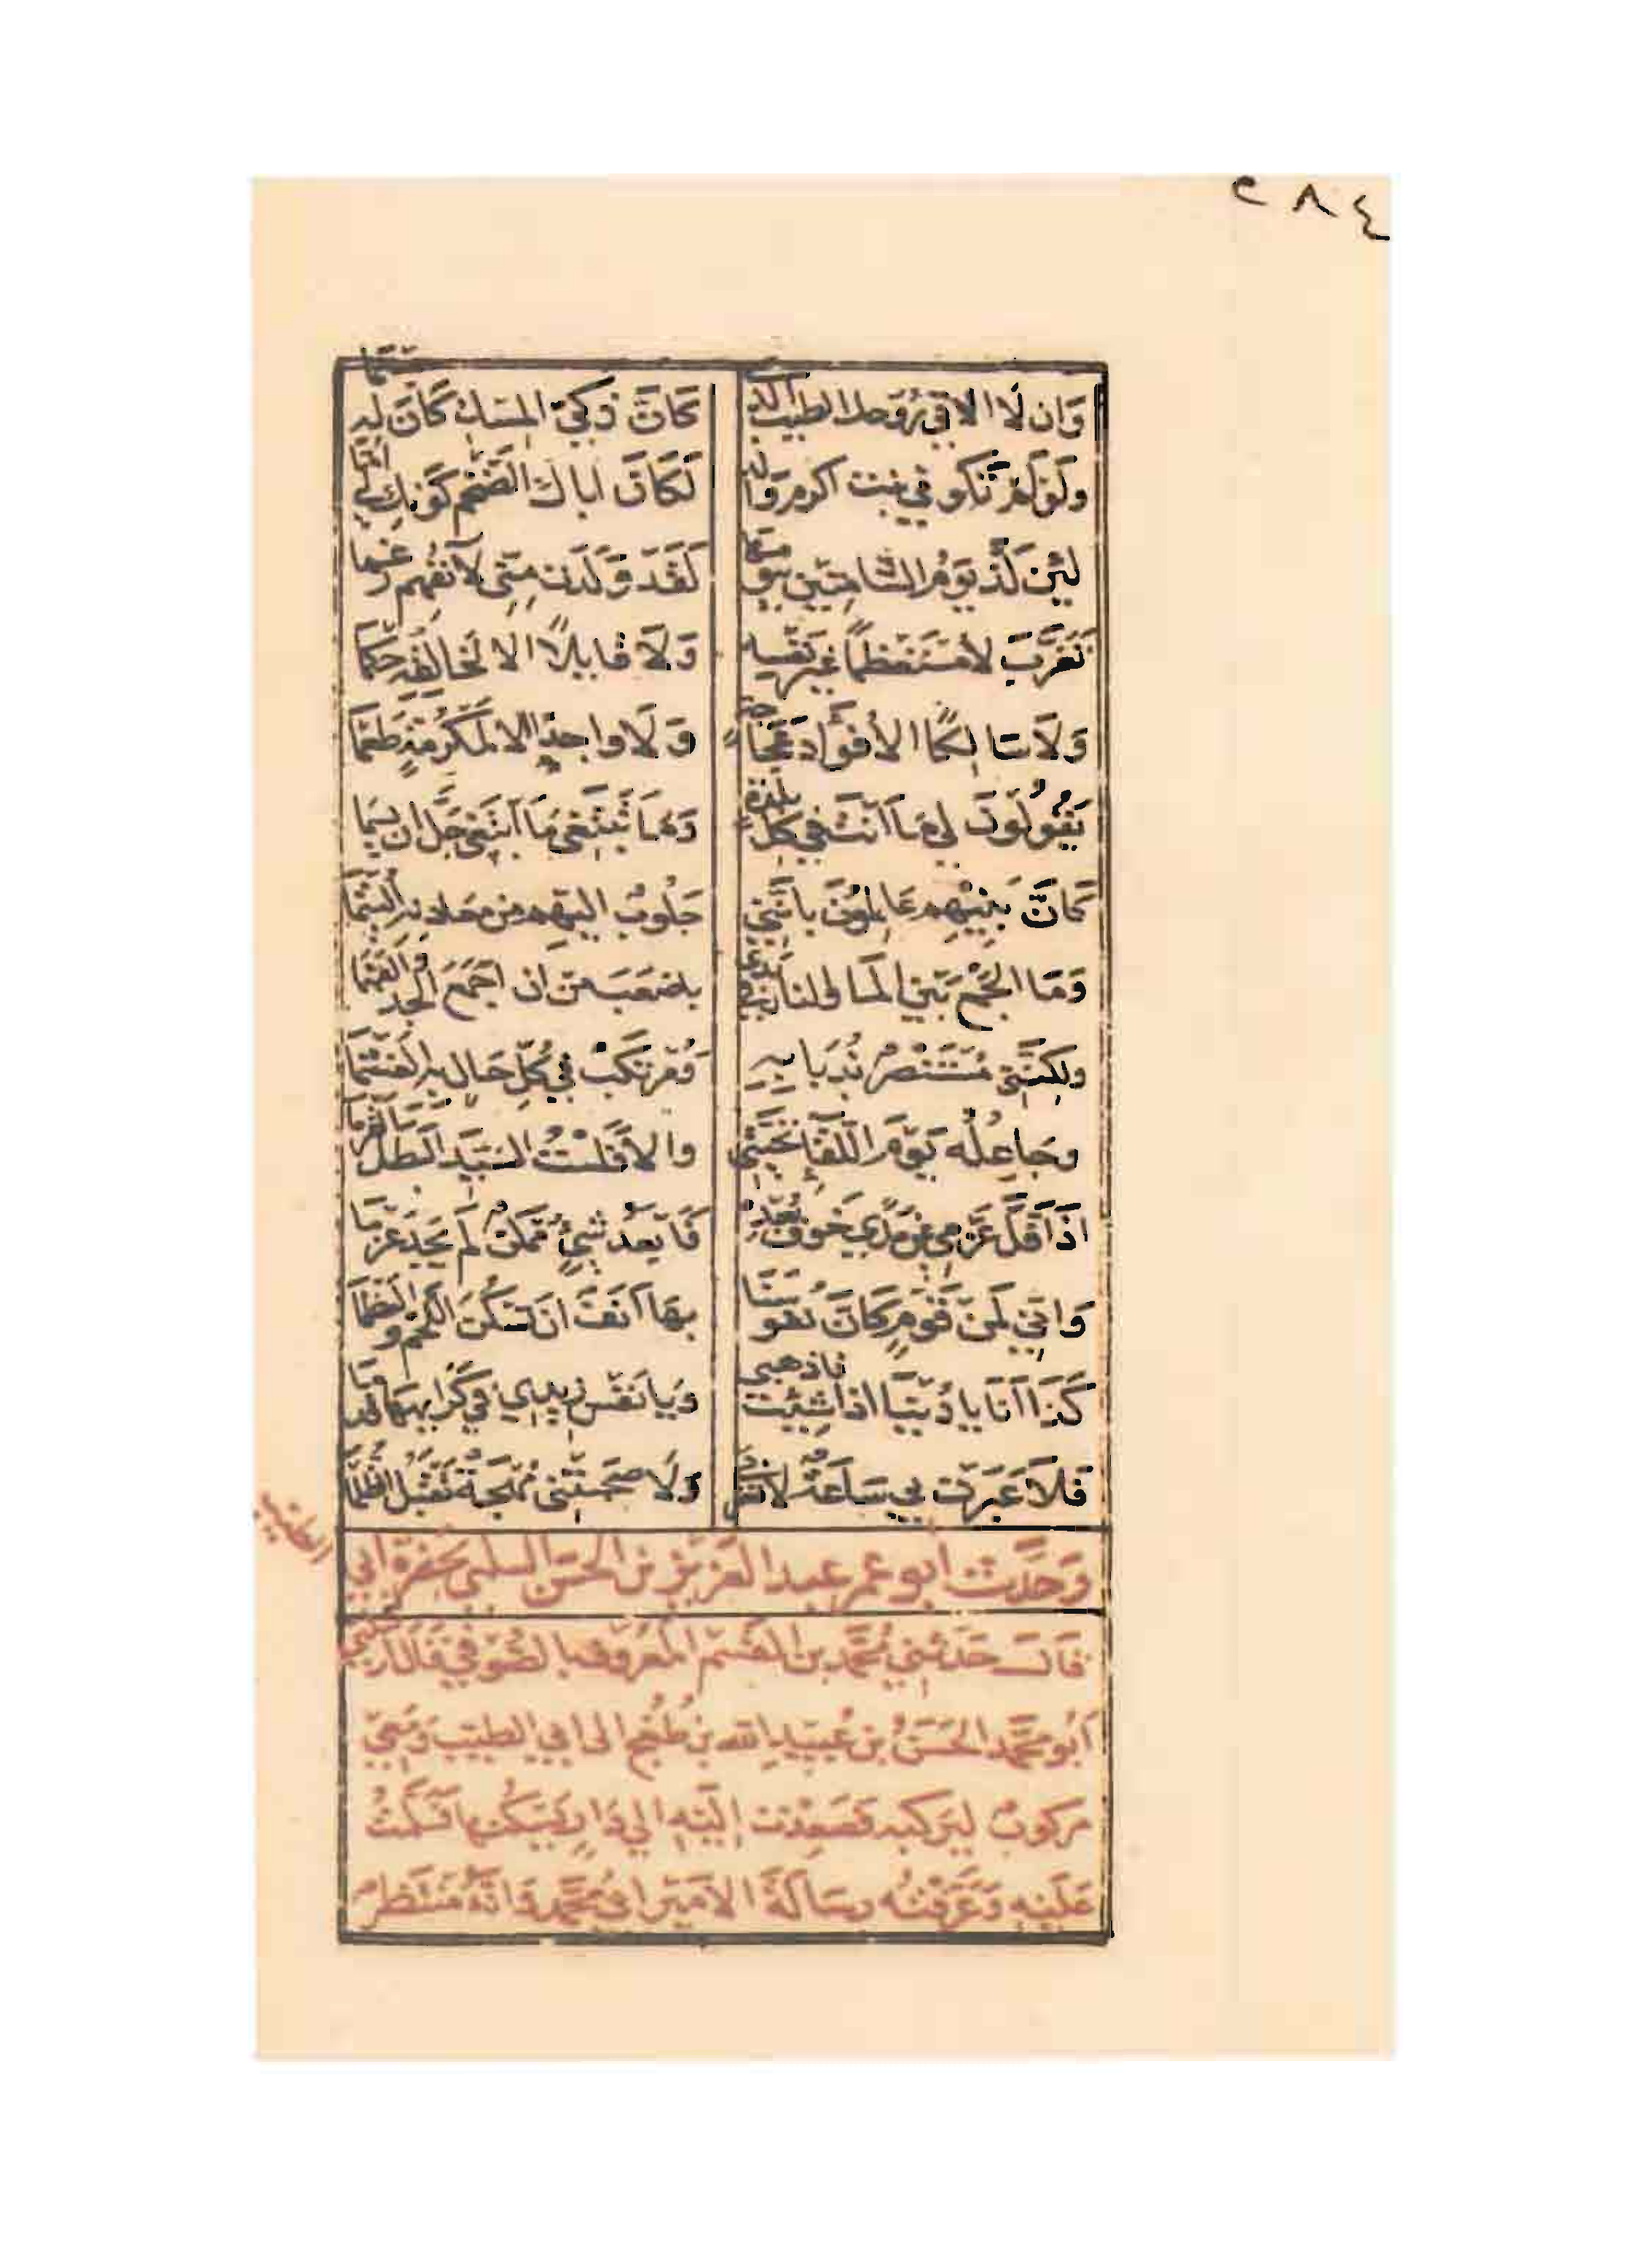 ٢٨٤
وَان لَا الاقي رُوحك الطيب الذي كَانَّ ذكيّ المِسْك كَانَ لَه جِسْمَا
ولَوْلَمْ تَكُو في بنت اكرم وَالِدٍ لَكَانَ اباك الضَّخْم كَوْنك لي اُمَّا
لئِنْ لَذّ يَوْمُ الشَّامِتِينَ بيَوْمِهَا لَقَدْ وَلَدَت مِنّى لآنفُهِم رَغْمَا
تَغَرَّبَ لا مُسْتَعْظِمًا غَيْرَ نَفْسِهِ وَلَا قابِلًا الا لخالقِهِ حُكْمَا
وَلَا سَالِكًا الا فُؤَادَ عَجَاجَةٍ وَلَا واجِدًا الا لمَكْرُمَةٍ طَعْمَا
يَقُولُونَ لي مَا اَنْتَ في كلّ بلْدَةٍ وَمَا تَبْتَغى مَا اَبْتَغى جَلَّ ان يسْمَا
كَانَّ بَنِيهِم عَالِمُونَ باَنَّنِي جَلُوبٌ اليهِم من معادنه اليُتْمَا
وَمَا الجَمْعُ بَيْنَ المَا والنار في يَدِي باصْعَبَ مِن ان اَجْمَعَ الجدَّ وَالفَهْمَا
ولكِنَّنِي مُسْتَنْصِرٌ بذُبَابِهِ وَمُرْتكِبٌ في كُلّ حَالٍ به الغَشْمَا
وجَاعِلُه يَوْمَ اللّقَآءِ تَحِيَّتِي والا فَلَسْتُ السّيّد البَطَلَ القَرْمَا
اذَا قَلَّ عَزْمِي عَنْ مَدًى خَوفُ بُعْدِهِ فَابْعَدُ شَيْءٍ مُمْكنٌ لَمْ يَجِدْ عَزْمَا
وَاِنّي لَمِنْ قَوْمٍ كَانَّ نُفُوسَنَا بهَا اَنَفٌ اَنْ تَسْكُنَ اللَّحْمَ وَالعَظْمَا
كَذَا اَنَا يا دُنْيَا اذا شِئْتِ فاذهبي وَيَا نَفْسُ زِيدِي في كَرَايهِهَا قُدْمَا
فَلَا عَبَرَت بي سَاعَةٌ لا تُعِزُّني وَلَا صَحِبَتْنِي مُهْجَةٌ تَقْبَلُ الظُّلْمَا
وَحَدّثَ اَبو عمر عبد العَزِيز بن الحَسَن السلمي بحَضرَة اَبي الطيب
قالَ حَدّثنِي مُحَمَّد بن القَسِم المَعْرُوف بالصُّوفي قَالَ اَرْسَلني
اَبُو مُحَمَّد الحَسَنُ بن عُبَيْدِ الله بن طُغْج الى ابي الطيّب وَمَعِي
مركوبٌ ليَرْكبه فَصَعِدْت اِلَيْهِ الي دَارٍ يَسْكُنها فَسَلَّمْتُ
عَلَيْهِ وَعَرّفْتُه رِسَالَةَ الاَمِير اَبي مُحَمَّد وَانّهُ مُنْتَظِرٌ